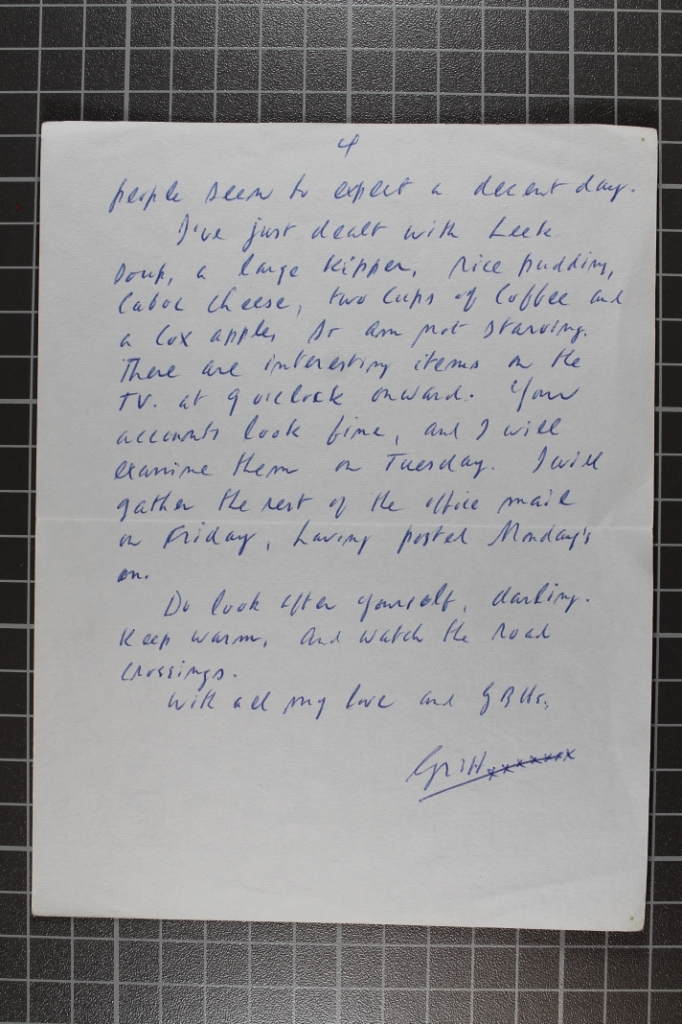 4
people seem to expect a decent day.
I've just dealt with Leek
Soup, a large kipper, rice pudding,
Caboc cheese, two cups of Coffee and
a Cox apple, so am not starving.
There are interesting items on the
TV. at 9 o'clock onward. Your
accounts look fine, and I will
examine them on Tuesday. I will
gather the rest of the office mail
on Friday, having posted Monday's
on.
Do look after yourself, darling.
Keep warm, and watch the road
crossings.
With all my love and GBHs,
Griff xxxxxxx